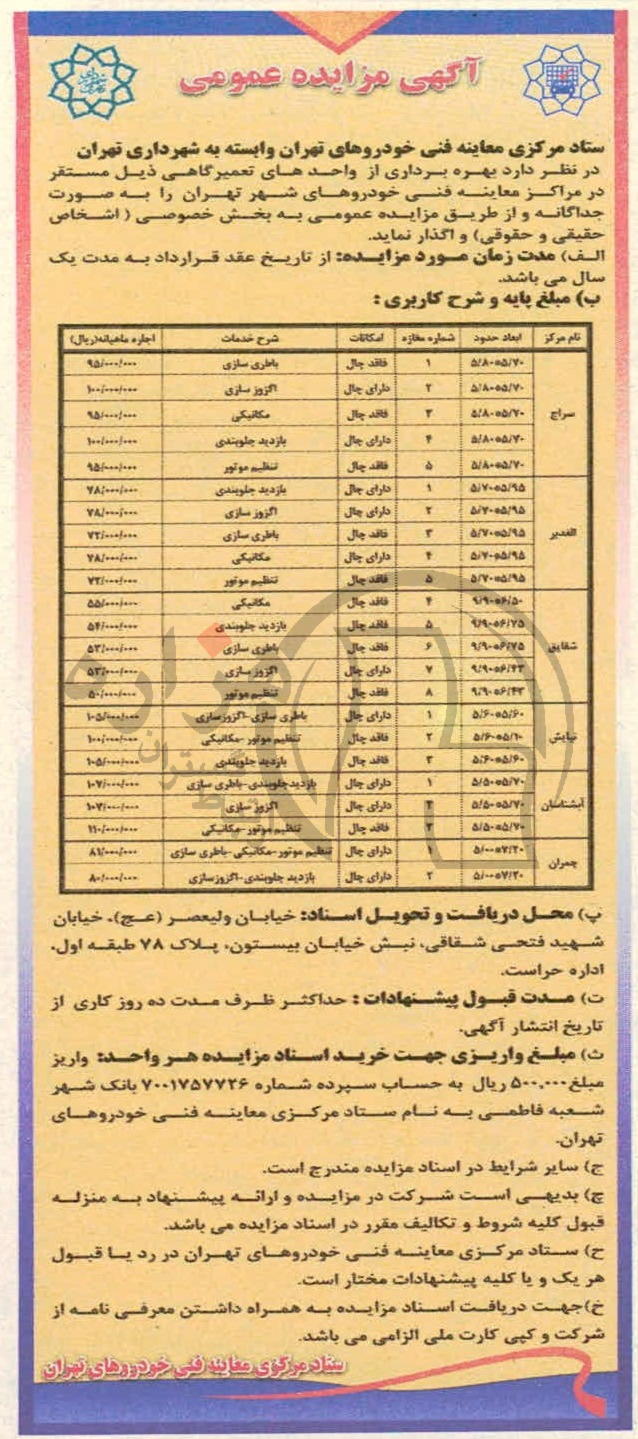 آگهی مزایده عمومی
ستاد مرکزی معاینه فنی خودروهای تهران وابسته به شهرداری تهران
در نظر دارد بهره برداری از واحد های تعمیرگاهی ذیل مستقر
در مراکز معاینه فنی خودروهای شهر تهران را به صورت
جداگانه و از طریق مزایده عمومی به بخش خصوصی ( اشخاص
حقیقی و حقوقی) واگذار نماید.
الف) مدت زمان مورد مزایده: از تاریخ عقد قرارداد به مدت یک
سال می باشد.
ب) مبلغ پایه و شرح کاربری :
نام مرکز ابعاد حدود شماره مغازه امکانات شرح خدمات اجاره ماهیانه(ریال)
سراج
۵/۸۰*۵/۷۰ ۱ فاقد چال باطری سازی ۹۵/۰۰۰/۰۰۰
۵/۸۰*۵/۷۰ ۲ دارای چال اگزوز سازی ۱۰۰/۰۰۰/۰۰۰
۵/۸۰*۵/۷۰ ۳ فاقد چال مکانیکی ۹۵/۰۰۰/۰۰۰
۵/۸۰*۵/۷۰ ۴ دارای چال بازدید جلوبندی ۱۰۰/۰۰۰/۰۰۰
۵/۸۰*۵/۷۰ ۵ فاقد چال تنظیم موتور ۹۵/۰۰۰/۰۰۰
الغدیر
۵/۷۰*۵/۹۵ ۱ دارای چال بازدید جلوبندی ۷۸/۰۰۰/۰۰۰
۵/۷۰*۵/۹۵ ۲ دارای چال اگزوز سازی ۷۸/۰۰۰/۰۰۰
۵/۷۰*۵/۹۵ ۳ فاقد چال باطری سازی ۷۲/۰۰۰/۰۰۰
۵/۷۰*۵/۹۵ ۴ دارای چال مکانیکی ۷۸/۰۰۰/۰۰۰
۵/۷۰*۵/۹۵ ۵ فاقد چال تنظیم موتور ۷۲/۰۰۰/۰۰۰
شقایق
۹/۹۰*۶/۵۰ ۴ فاقد چال مکانیکی ۵۵/۰۰۰/۰۰۰
۹/۹۰*۶/۷۵ ۵ فاقد چال بازدید جلوبندی ۵۴/۰۰۰/۰۰۰
۹/۹۰*۶/۷۵ ۶ فاقد چال باطری سازی ۵۳/۰۰۰/۰۰۰
۹/۹۰*۶/۴۳ ۷ دارای چال اگزوز سازی ۵۳/۰۰۰/۰۰۰
۹/۹۰*۶/۴۳ ۸ فاقد چال تنظیم موتور ۵۰/۰۰۰/۰۰۰
نیایش
۵/۶۰*۵/۶۰ ۱ دارای چال باطری سازی-اگزوزسازی ۱۰۵/۰۰۰/۰۰۰
۵/۶۰*۵/۱۰ ۲ فاقد چال تنظیم موتور-مکانیکی ۱۰۰/۰۰۰/۰۰۰
۵/۶۰*۵/۶۰ ۳ فاقد چال بازدید جلوبندی ۱۰۵/۰۰۰/۰۰۰
آبشناسان
۵/۵۰*۵/۷۰ ۱ دارای چال بازدیدجلوبندی-باطری سازی ۱۰۷/۰۰۰/۰۰۰
۵/۵۰*۵/۷۰ ۲ دارای چال اگزوز سازی ۱۰۷/۰۰۰/۰۰۰
۵/۵۰*۵/۷۰ ۳ فاقد چال تنظیم موتور-مکانیکی ۱۱۰/۰۰۰/۰۰۰
چمران
۵/۰۰*۷/۲۰ ۱ فاقد چال تنظیم موتور-مکانیکی-باطری سازی ۸۱/۰۰۰/۰۰۰
۵/۰۰*۷/۲۰ ۲ دارای چال بازدید جلوبندی-اگزوزسازی ۸۰/۰۰۰/۰۰۰
پ) محل دریافت و تحویل اسناد: خیابان ولیعصر (عج)، خیابان
شهید فتحی شقاقی، نبش خیابان بیستون، پلاک ۷۸ طبقه اول،
اداره حراست.
ت) مدت قبول پیشنهادات : حداکثر ظرف مدت ده روز کاری از
تاریخ انتشار آگهی.
ث) مبلغ واریزی جهت خرید اسناد مزایده هر واحد: واریز
مبلغ ۵۰۰,۰۰۰ ریال به حساب سپرده شماره ۷۰۰۱۷۵۷۷۲۶ بانک شهر
شعبه فاطمی به نام ستاد مرکزی معاینه فنی خودروهای
تهران.
ج) سایر شرایط در اسناد مزایده مندرج است.
چ) بدیهی است شرکت در مزایده و ارائه پیشنهاد به منزله
قبول کلیه شروط و تکالیف مقرر در اسناد مزایده می باشد.
ح) ستاد مرکزی معاینه فنی خودروهای تهران در رد یا قبول
هر یک و یا کلیه پیشنهادات مختار است.
خ)جهت دریافت اسناد مزایده به همراه داشتن معرفی نامه از
شرکت و کپی کارت ملی الزامی می باشد.
ستاد مرکزی معاینه فنی خودروهای تهران